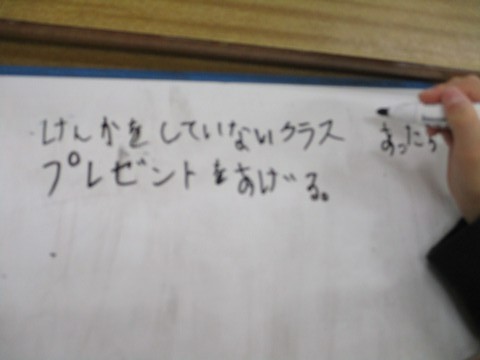 けんかをしていないクラス あったら
プレゼントをあげる。